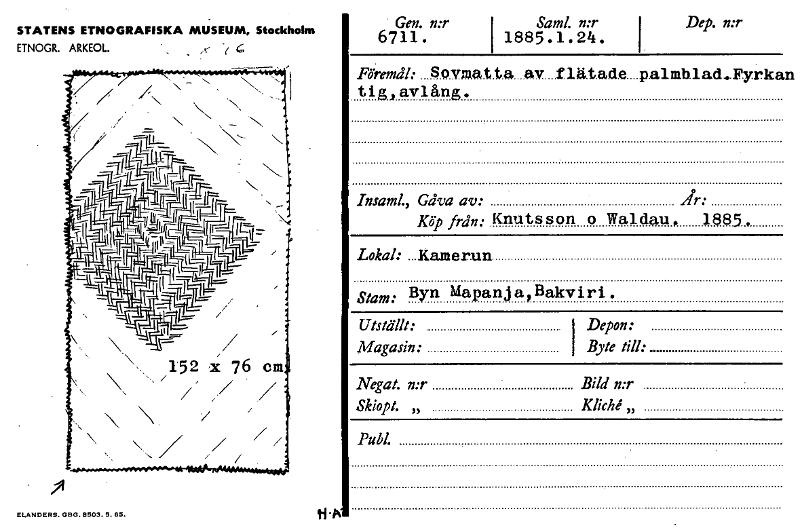 STATENS ETNOGRAFISKA MUSEUM, Stockholm
ETNOGR. ARKEOL.
152 x 76 cm
ELANDERS. GBG. 8503. 5. 65.
H.A
Gen. n:r Saml. n:r Dep. n:r
6711. 1885.1.24.
Föremål: Sovmatta av flätade palmblad.Fyrkan
tig,avlång.
Insaml., Gåva av: År:
Köp från: Knutsson o Waldau. 1885.
Lokal: Kamerun
Stam: Byn Mapanja,Bakviri.
Utställt: Depon:
Magasin: Byte till:
Negat. n:r Bild n:r
Skiopt. „ Kliché „
Publ.